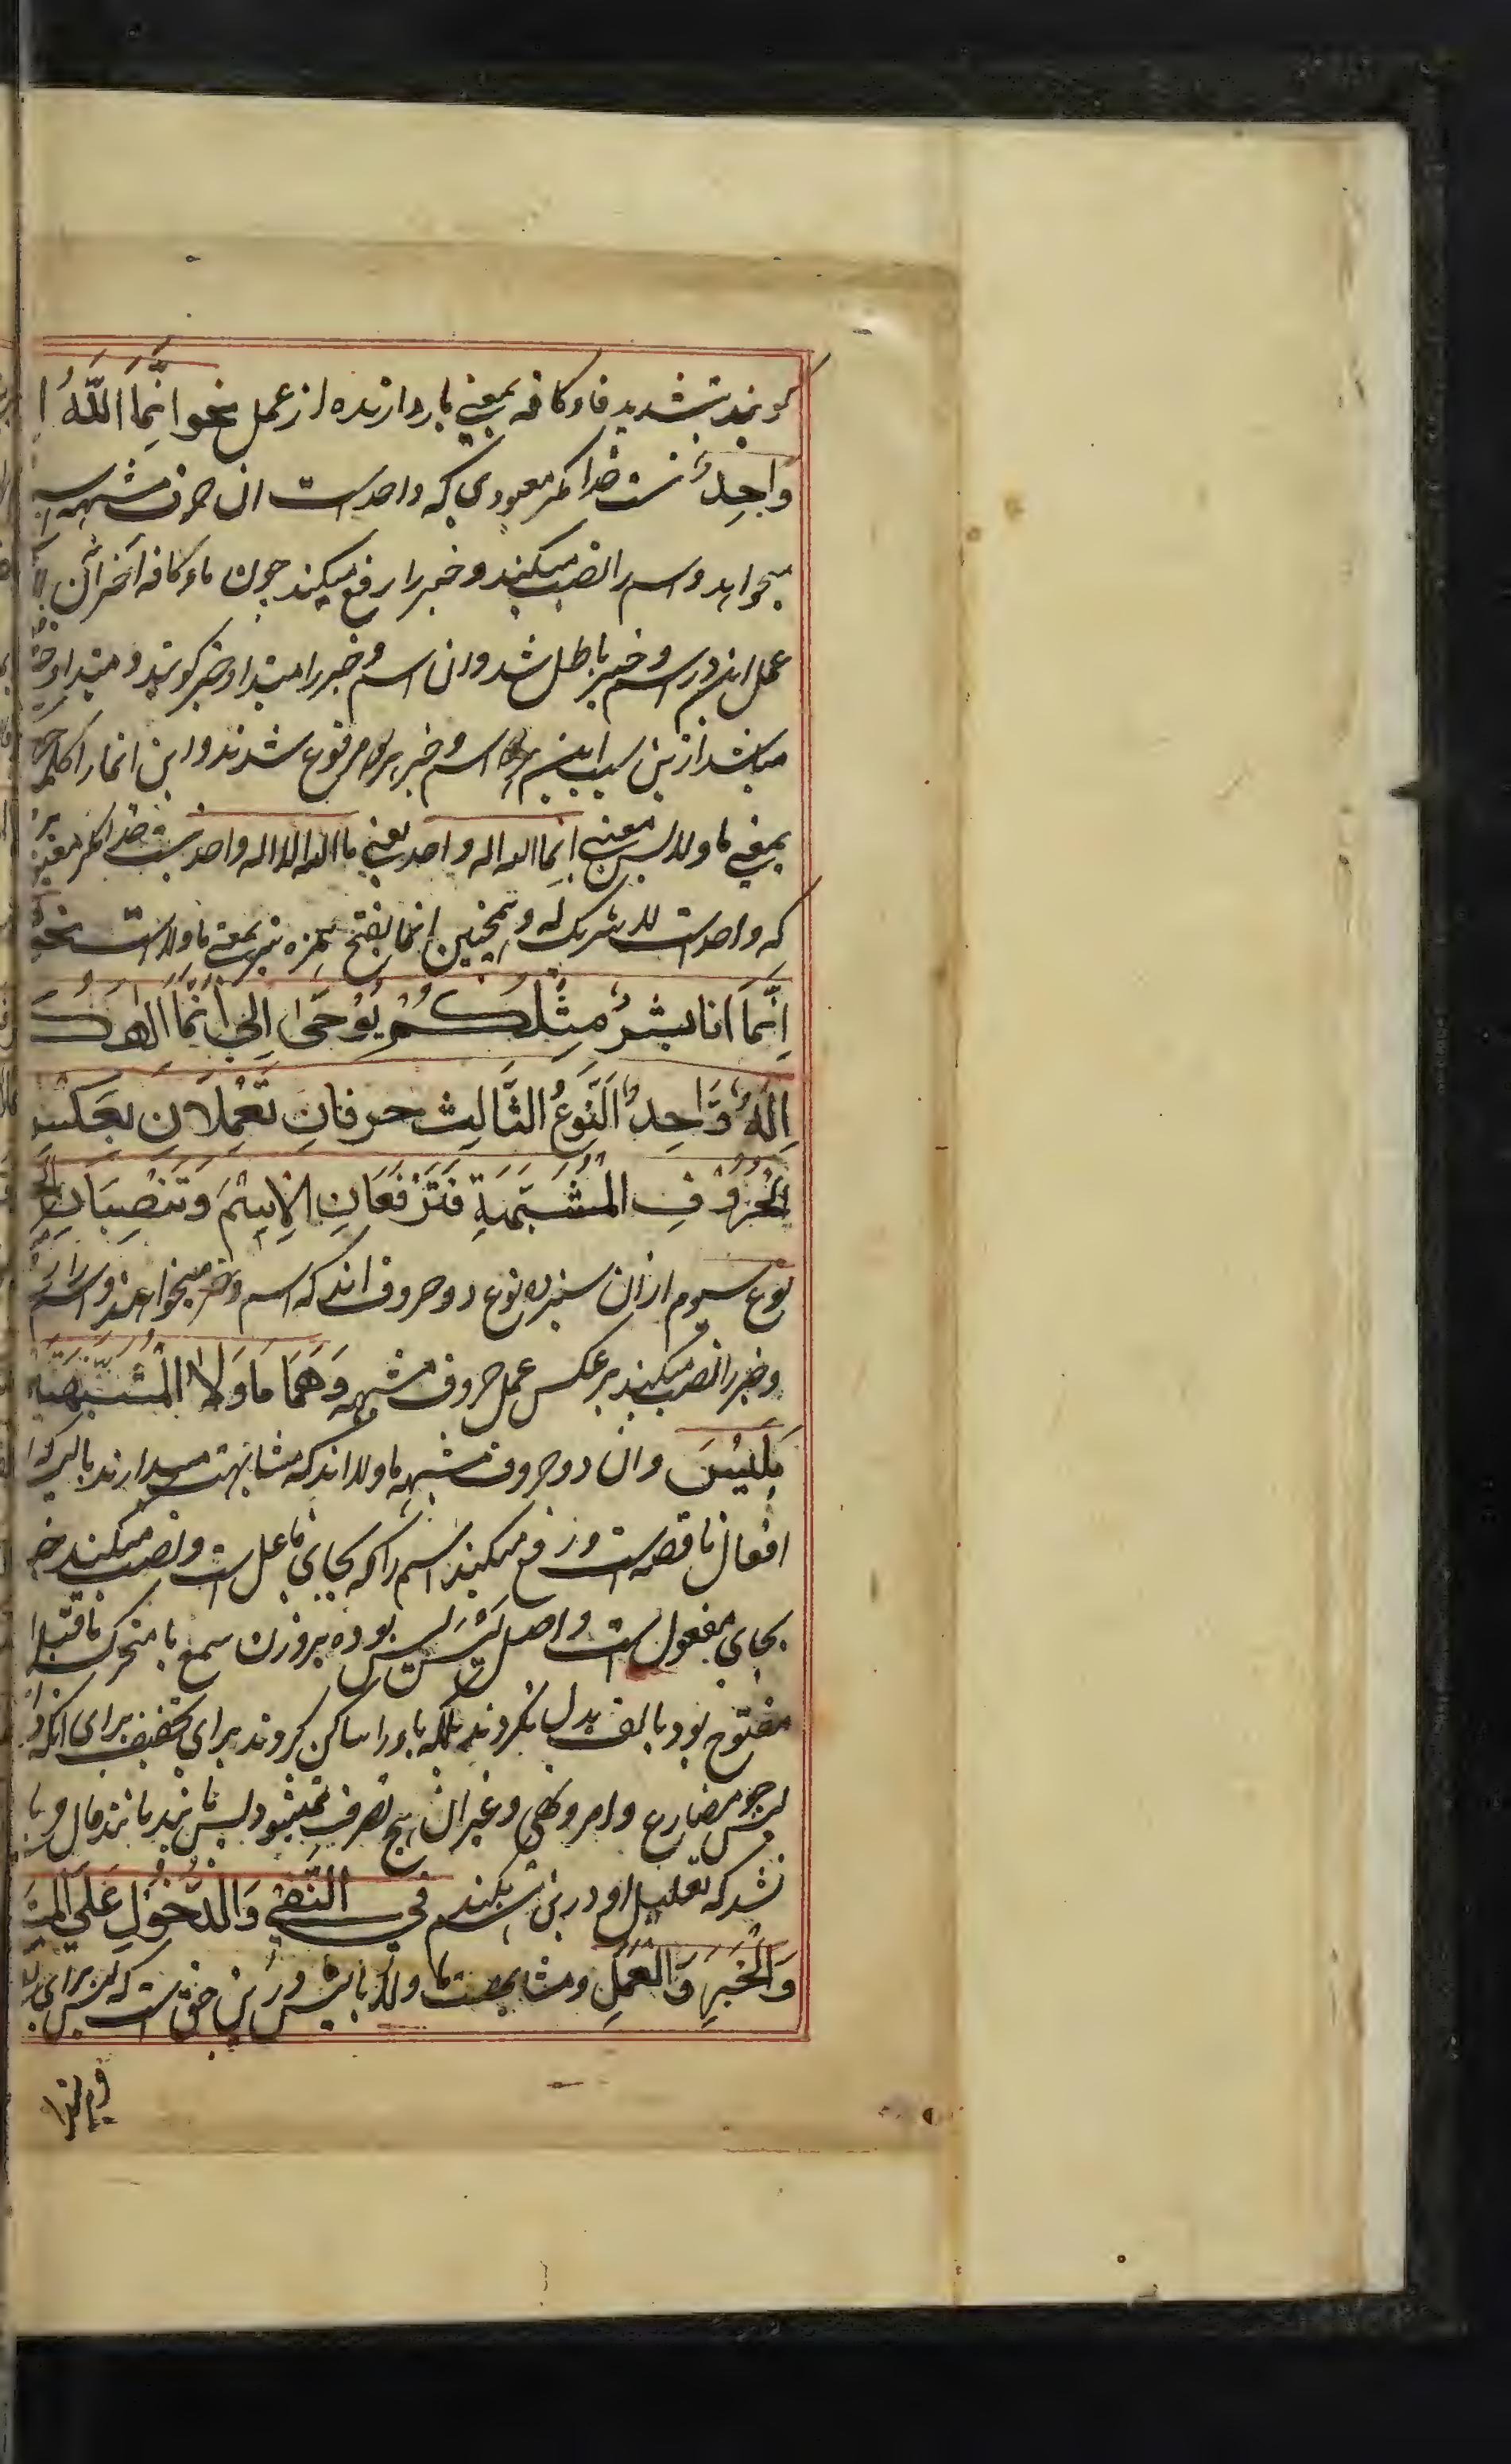 گویند بتشدید فا و کافه بمعنی بازدارنده از عمل نحو اِنَّمَا اللّٰهُ ا
وَاحِدٌ نیست خدا مگر معبودی که واحد است ان حرف مشبهه اس
میخواهد و اسم را نصب میکند و خبر را رفع میکند چون ماء کافه آخر ان
عمل ان در اسم و خبر باطل شد و ان اسم و خبر را مبتدا و خبر گویند و مبتدا و خ
میباشد ازین سبب این اسم و خبر مرفوع شدند و این انما را کلمه
بمعنی ما و الا پس معنی انما الله اله واحد یعنی ما الله الا اله واحد نیست خدا مگر معبو
که واحد است لا شریک له و همچنین انما بفتح همزه نیز بمعنی ما و الا است نحو
اِنَّمَا انا بشرٌ مِثْلُكُمْ يُوْحٰى اِلَيَّ اَنَّمَا الهك
اِلٰهٌ وَّاحِدٌ اَلنَّوعُ الثَّالِث حرفانِ تَعْمِلَانِ بعَكس
الْحُرُوْفِ المُشَبَّهَةِ فَتَرْفَعَانِ الْاِسْمَ وَتَنْصِبَانِ الخ
نوع سیوم ازان سیزده نوع دو حروف اند که اسم و خبر میخواهند و اسم را رفع
و خبر را نصب میکنند برعکس عمل حروف مشبهه وَهُمَا مَا وَلَا المُشَبَّهَتَا
بِلَيْسَ و ان دو حروف مشبهه ما و لا اند که مشابهت میدارند با لیس که از
افعال ناقصه است و رفع میکنند اسم را که بجای فاعل است و نصب میکنند خبر
بجای مفعول است و اصل لیس لَیِسَ بوده بر وزن سمع یا متحرک ماقبل او
مفتوح بود با الف بدل نکردند بلکه یاء را ساکن کردند برای تخفیف برای انکه از
لیس جو مضارع و امر و نهی و غیر ان هیچ تصرف نمیشود لیس مانند مانند قال و با
نشد که تعلیل او درین اسم بکنند في النَّفْي وَالدُّخُوْلِ عَلَى المُبْتَ
وَالْخَبَرِ وَالْعَمَلِ و مشابهت ما و لا با لیس درین حق است که لیس برای